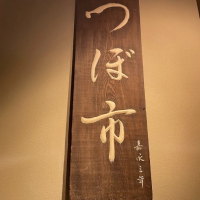 つぼ市
嘉永三年